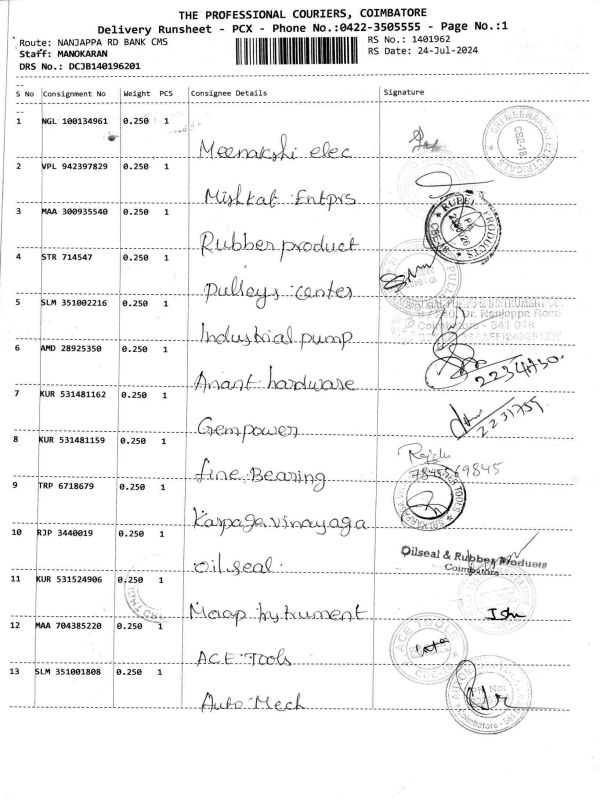 THE PROFESSIONAL COURIERS, COIMBATORE
Delivery Runsheet - PCX - Phone No.:0422-3505555 - Page No.:1
Route: NANJAPPA RD BANK CMS RS No.: 1401962
Staff: MANOKARAN RS Date: 24-Jul-2024
DRS No.: DCJB140196201
S No Consignment No Weight PCS Consignee Details Signature
1 NGL 100134961 0.250 1
SRI MEENAKSHI ELECTRICALS CBE-18
Meenakshi elec
2 VPL 942397829 0.250 1
Mishkat Entprs
3 MAA 300935540 0.250 1
RUBBER PRODUCTS CBE-18
Rubber product
4 STR 714547 0.250 1
pulleys center
5 SLM 351002216 0.250 1
INDUSTRIAL PUMPS & INSTRUMENT
Dr. Nanjappa Road
Coimbatore - 641 018
Industrial pump
6 AMD 28925350 0.250 1
2234130.
Anant hardware
7 KUR 531481162 0.250 1
2231759.
Gempower
8 KUR 531481159 0.250 1
7845569845
fine Bearing
9 TRP 6718679 0.250 1
TOOLS
Karpaga vinayaga
10 RJP 3440019 0.250 1
Oilseal & Rubber Products
Coimbatore
oil seal
11 KUR 531524906 0.250 1
John
Maap Instrument
12 MAA 704385220 0.250 1
ACE TOOLS
ACE Tools
13 SLM 351001808 0.250 1
Coimbatore - 641
Auto Mech